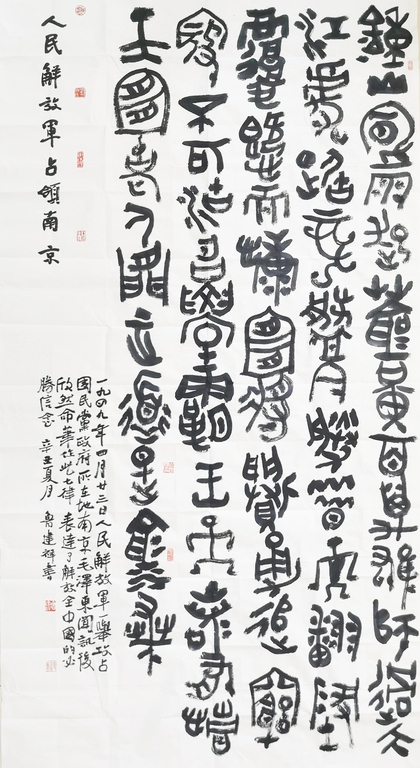 鍾山風雨起蒼黃百萬雄師過大
江虎踞龍盤今勝昔天翻地
覆慨而慷宜將剩勇追窮
寇不可沽名學霸王天若有情
天亦老人間正道是滄桑
一九四九年四月廿三日人民解放軍一舉攻占
國民黨政府所在地南京毛澤東聞訊後
欣然命筆作此七律表達了解放全中國的必
勝信念 辛丑夏月 魯建書
人民解放軍占領南京